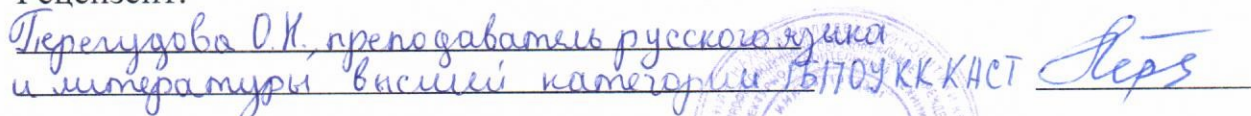 Рецензент:
Перегудова О.Н., преподаватель русского языка
и литературы высшей категории ГБПОУ КК КАСТ